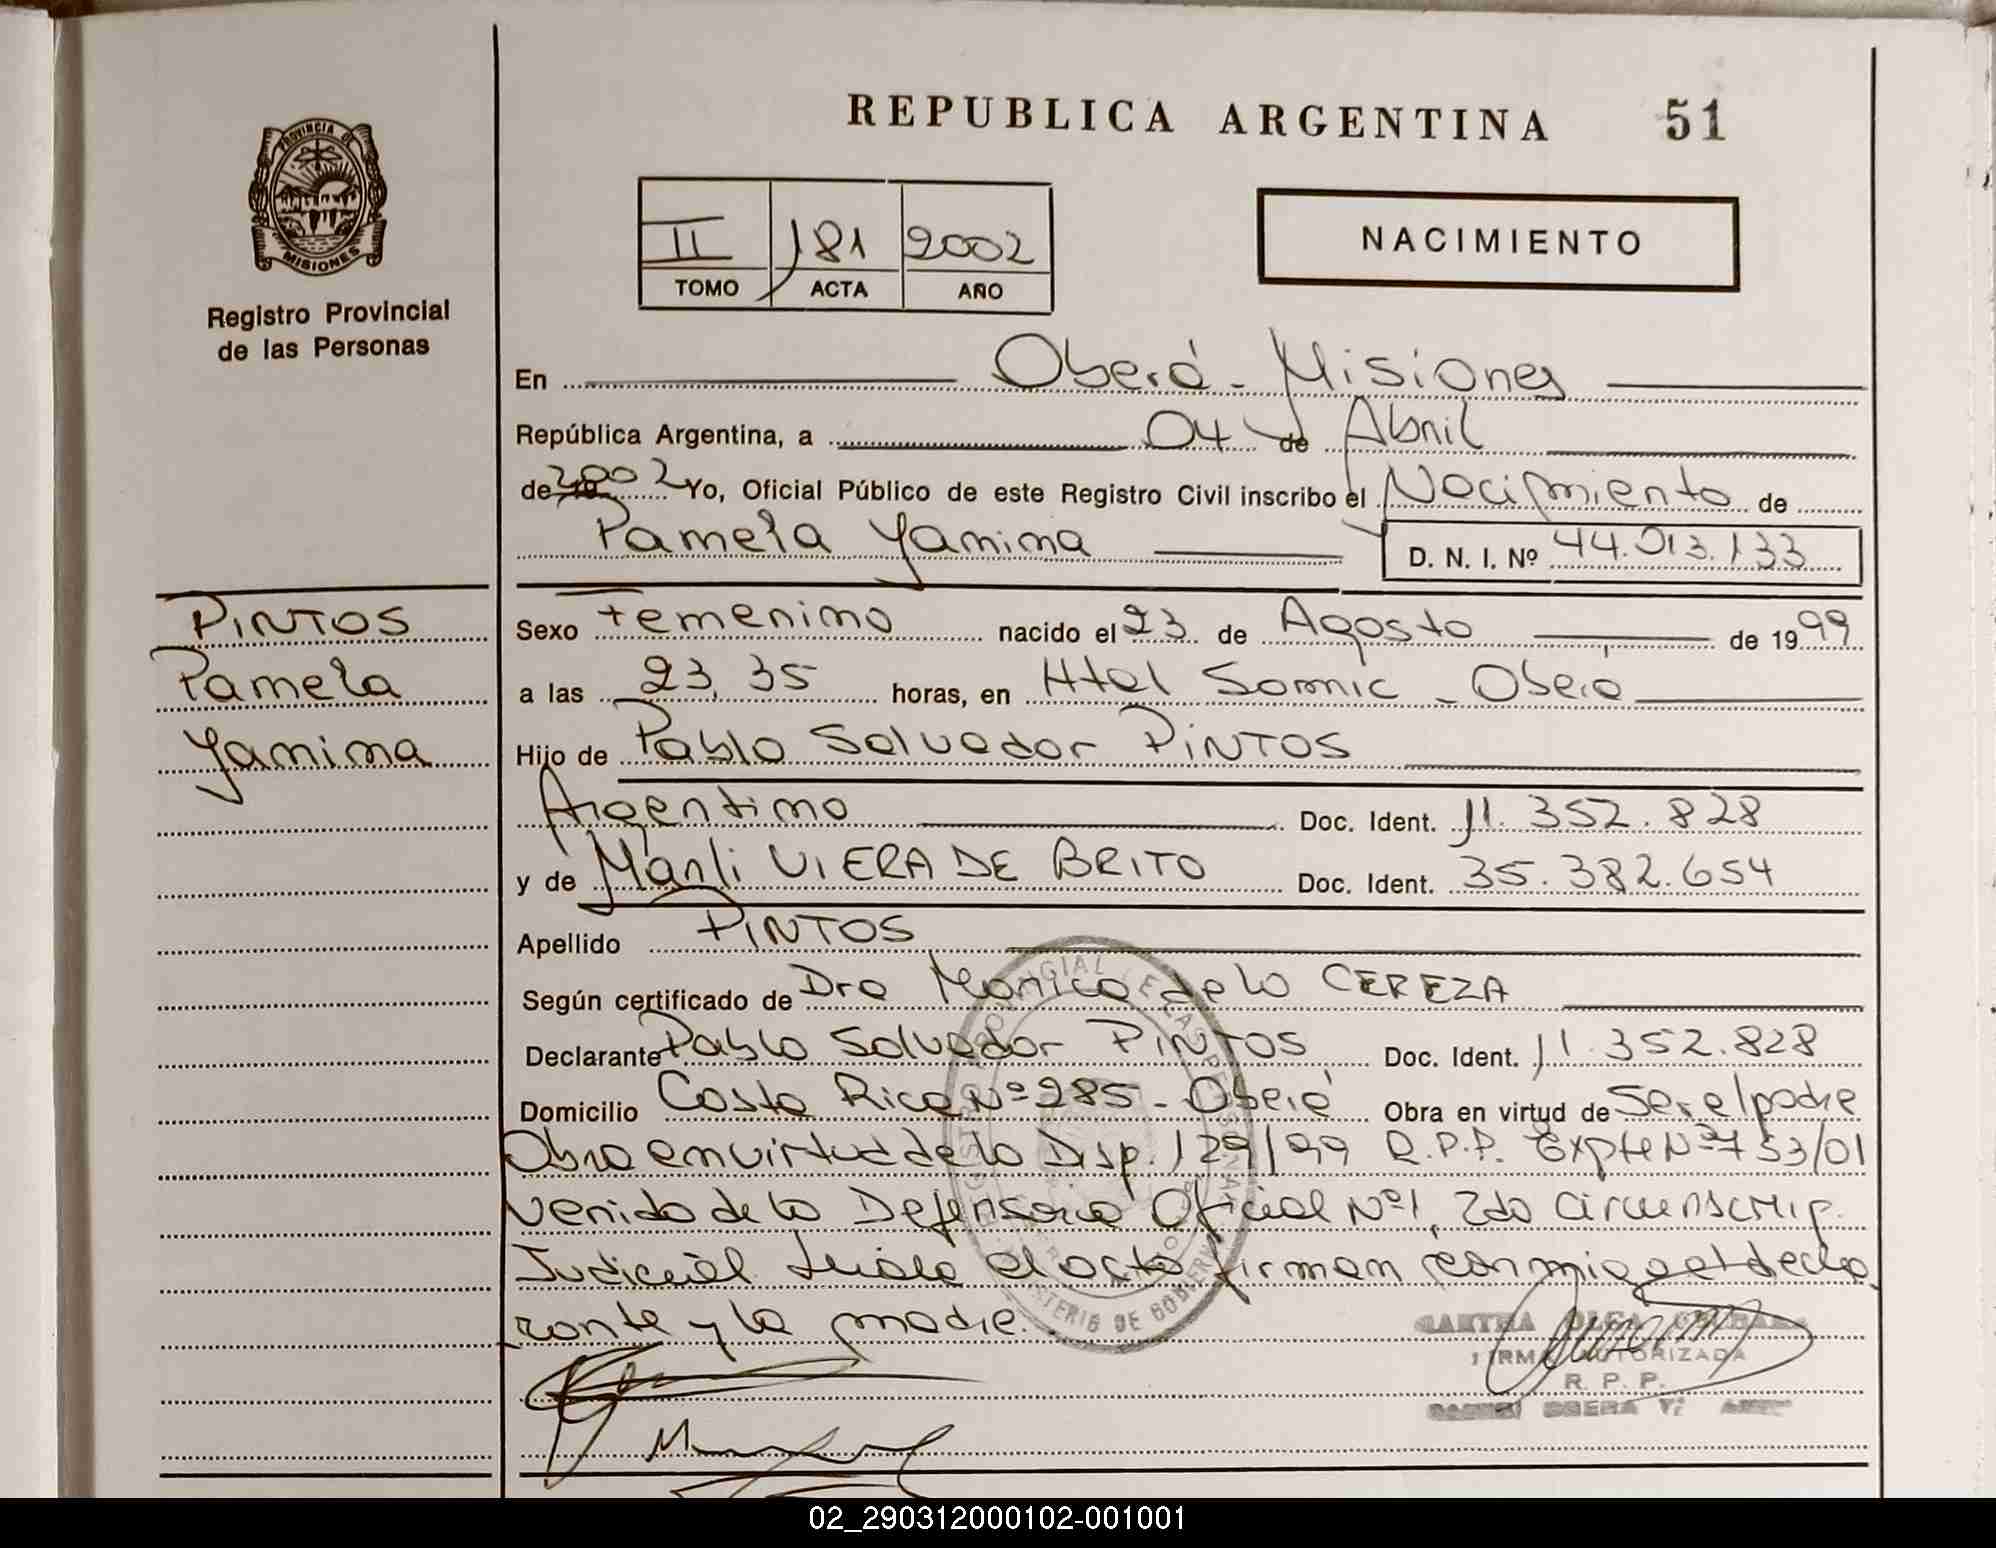 REPUBLICA ARGENTINA 51
PROVINCIA DE
MISIONES
Registro Provincial
de las Personas
II 181 2002
TOMO ACTA AÑO
NACIMIENTO
En Oberá - Misiones
República Argentina, a 04 de Abril
de 2002 Yo, Oficial Público de este Registro Civil inscribo el Nacimiento de
Pamela Yanina D. N. I. Nº 44.013.133
PINTOS
Pamela
Yanina
Sexo Femenino nacido el 23 de Agosto de 1999
a las 23,35 horas, en Htal Samic - Oberá
Hijo de Pablo Salvador PINTOS
Argentino Doc. Ident. 11.352.828
y de Marli VIERA DE BRITO Doc. Ident. 35.382.654
Apellido PINTOS
Según certificado de Dra Monica de la CEREZA
Declarante Pablo Salvador PINTOS Doc. Ident. 11.352.828
Domicilio Costa Rica Nº 285 - Oberá Obra en virtud de Ser el padre
Obra en virtud de la Disp. 129/99 R.P.P. Expte Nº 753/01
venido de la Defensoria Oficial Nº1, 2da Circunscrip.
Judicial. Leida el acta firman conmigo el decla
rante y la madre.
FIRMA AUTORIZADA
R. P. P.
02_290312000102-001001